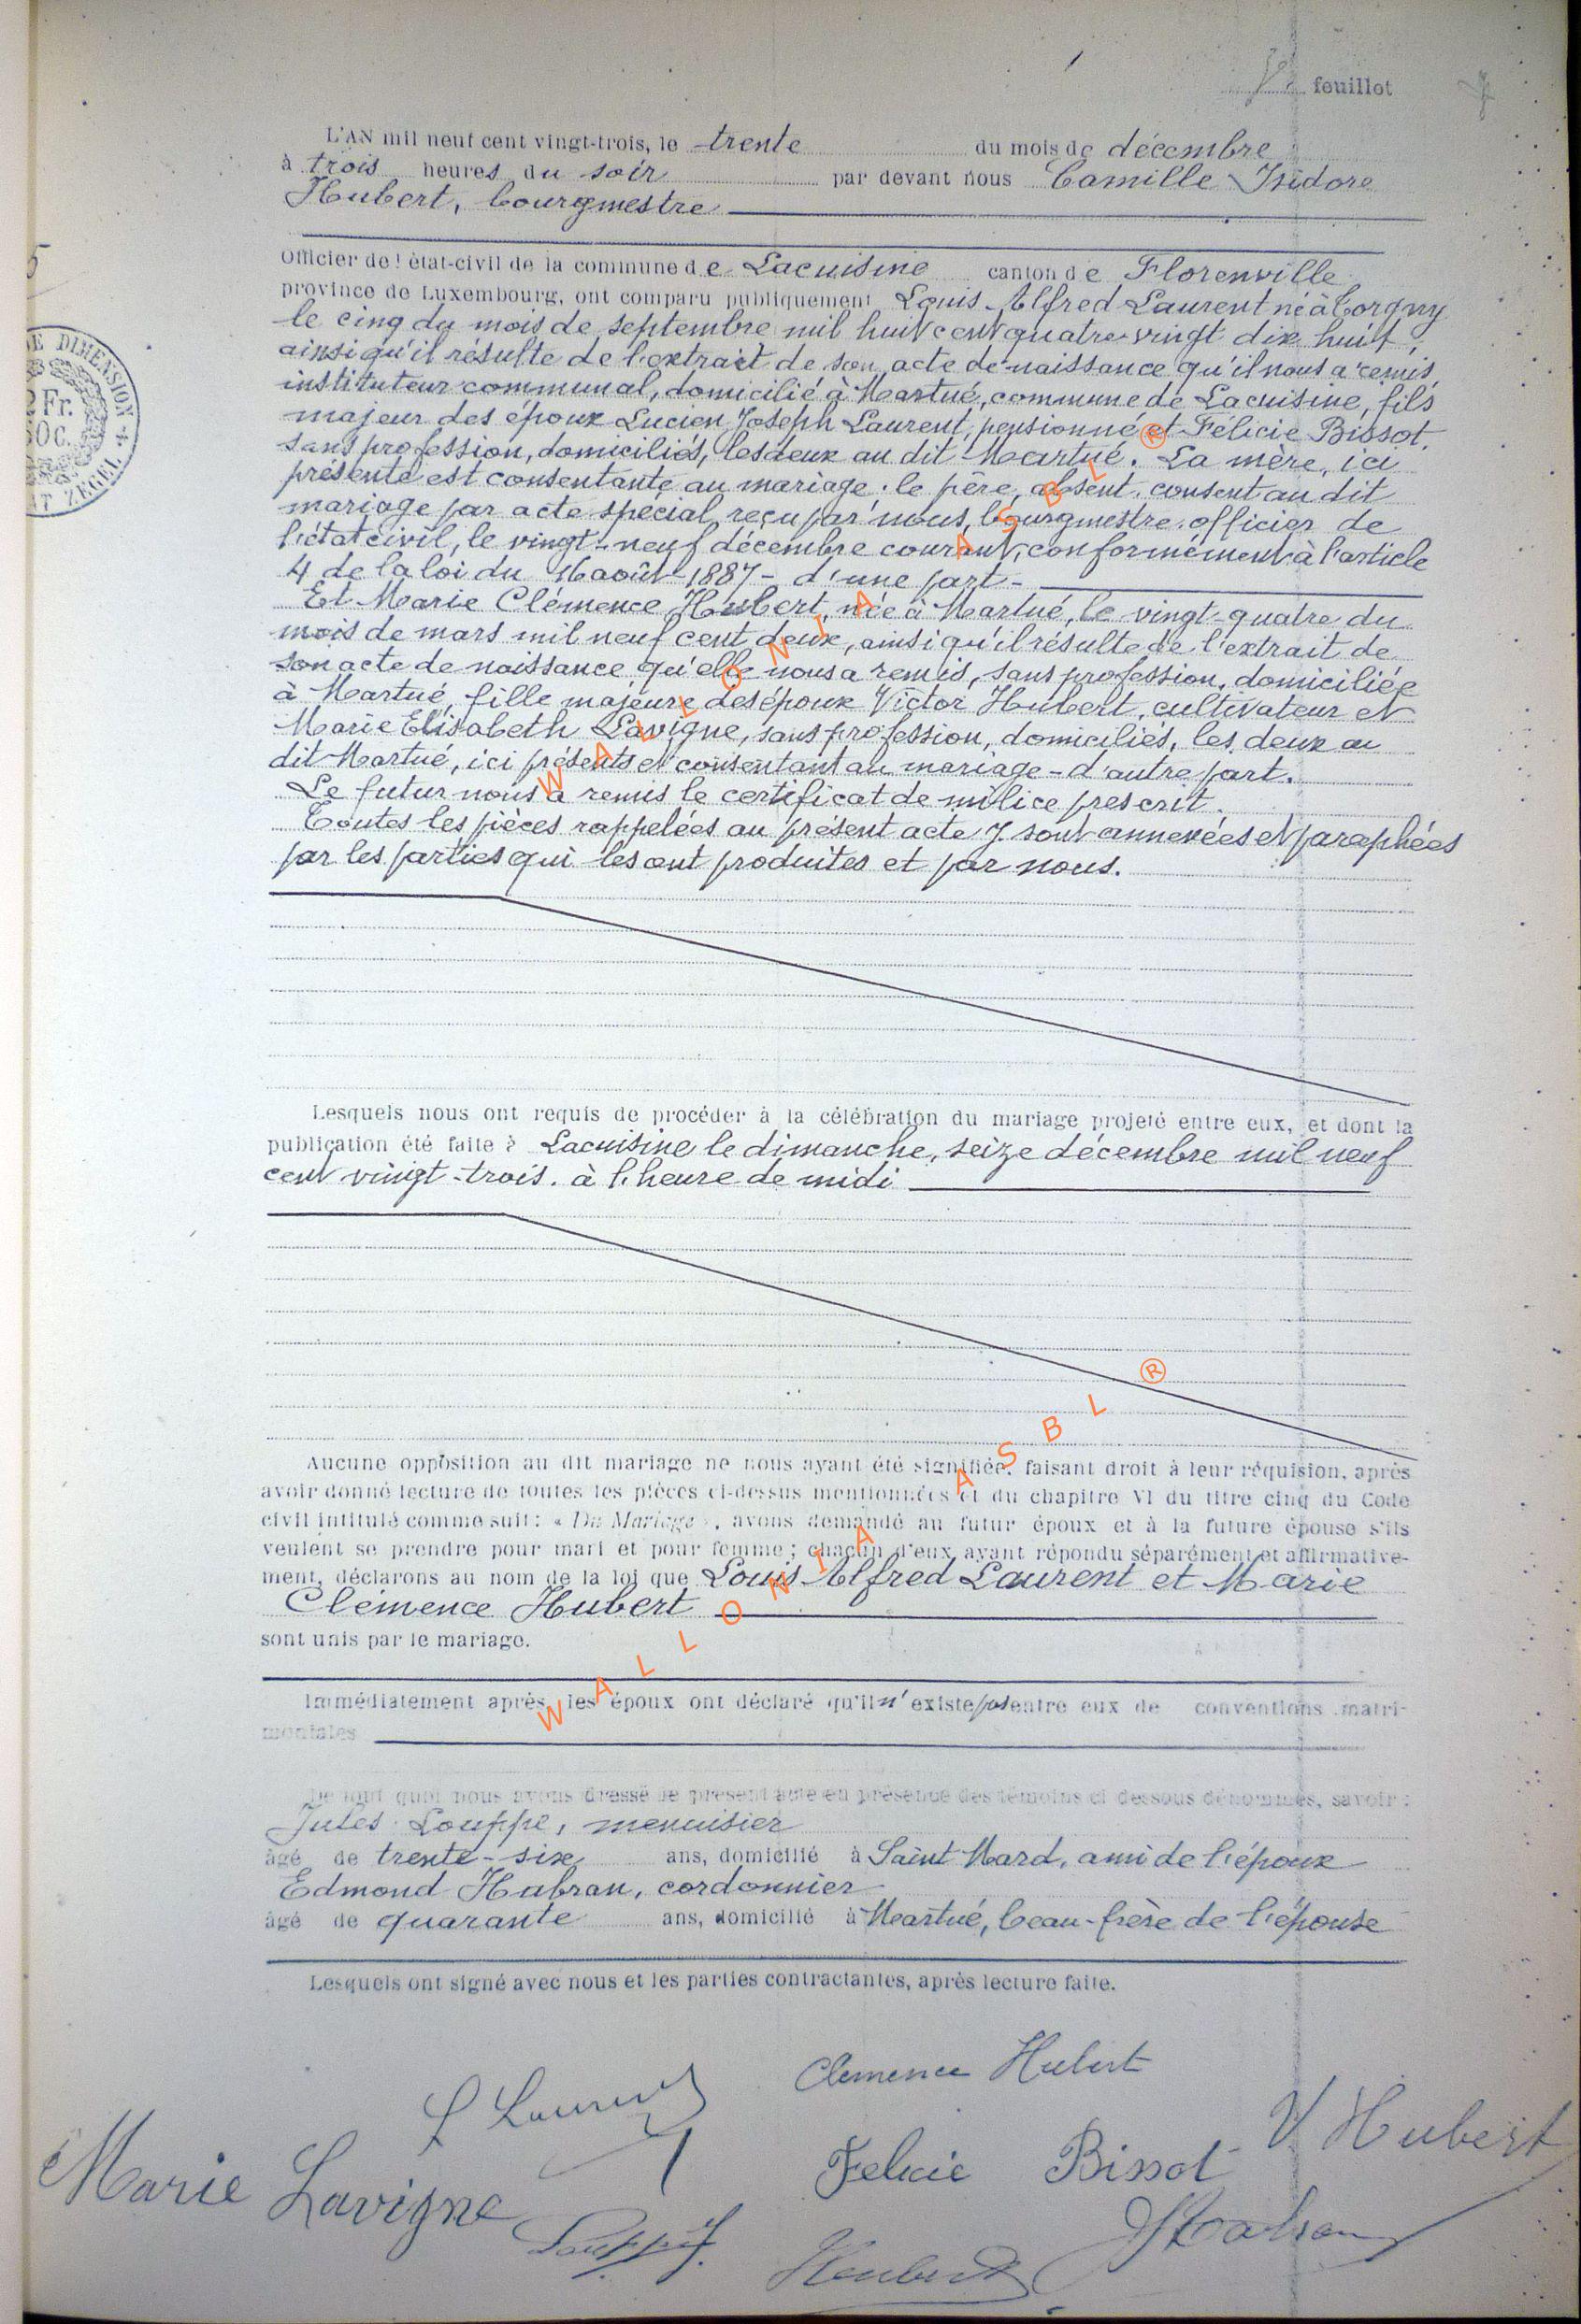 feuillet
L'AN mil neuf cent vingt-trois, le trente du mois de décembre
à trois heures du soir par devant nous Camille Isidore
Hubert, bourgmestre
Officier de l'état-civil de la commune de Lacuisine canton de Florenville
province de Luxembourg, ont comparu publiquement Louis Alfred Laurent né à Torgny
le cinq du mois de septembre mil huit cent quatre-vingt dix huit,
ainsi qu'il résulte de l'extrait de son acte de naissance qu'il nous a remis,
instituteur communal, domicilié à Martué, commune de Lacuisine, fils
majeur des époux Lucien Joseph Laurent, pensionné et Félicie Bissot,
sans profession, domiciliés, les deux au dit Martué. La mère, ici
présente est consentante au mariage; le père, absent, consent au dit
mariage par acte spécial reçu par nous, bourgmestre officier de
l'état civil, le vingt-neuf décembre courant, conformément à l'article
4 de la loi du 16 août 1887 - d'une part -
Et Marie Clémence Hubert, née à Martué, le vingt-quatre du
mois de mars mil neuf cent deux, ainsi qu'il résulte de l'extrait de
son acte de naissance qu'elle nous a remis, sans profession, domiciliée
à Martué, fille majeure des époux Victor Hubert, cultivateur et
Marie Elisabeth Lavigne, sans profession, domiciliés, les deux au
dit Martué, ici présents et consentant au mariage - d'autre part.
Le futur nous a remis le certificat de milice prescrit.
Toutes les pièces rappelées au présent acte y sont annexées et paraphées
par les parties qui les ont produites et par nous.
Lesquels nous ont requis de procéder à la célébration du mariage projeté entre eux, et dont la
publication été faite à Lacuisine le dimanche, seize décembre mil neuf
cent vingt-trois, à l'heure de midi
Aucune opposition au dit mariage ne nous ayant été signifiée, faisant droit à leur réquision, après
avoir donné lecture de toutes les pièces ci-dessus mentionnées et du chapitre VI du titre cinq du Code
civil intitulé comme suit: « Du Mariage », avons demandé au futur époux et à la future épouse s'ils
veulent se prendre pour mari et pour femme; chacun d'eux ayant répondu séparément et affirmative-
ment, déclarons au nom de la loi que Louis Alfred Laurent et Marie
Clémence Hubert
sont unis par le mariage.
Immédiatement après, les époux ont déclaré qu'il n'existe pas entre eux de conventions matri-
moniales
De tout quoi nous avons dressé le présent acte en présence des témoins ci dessous dénommés, savoir:
Jules Louppe, menuisier
âgé de trente-six ans, domicilié à Saint Mard, ami de l'époux
Edmond Habran, cordonnier
âgé de quarante ans, domicilié à Martué, beau-frère de l'épouse
Lesquels ont signé avec nous et les parties contractantes, après lecture faite.
Clemence Hubert
L Laurent
V Hubert
Marie Lavigne
Felicie Bissot
Louppe J.
Habran
Hubert
DE DIMENSION
2 Fr.
50 C.
ZEGEL
WALLONIA ASBL ®
WALLONIA ASBL ®